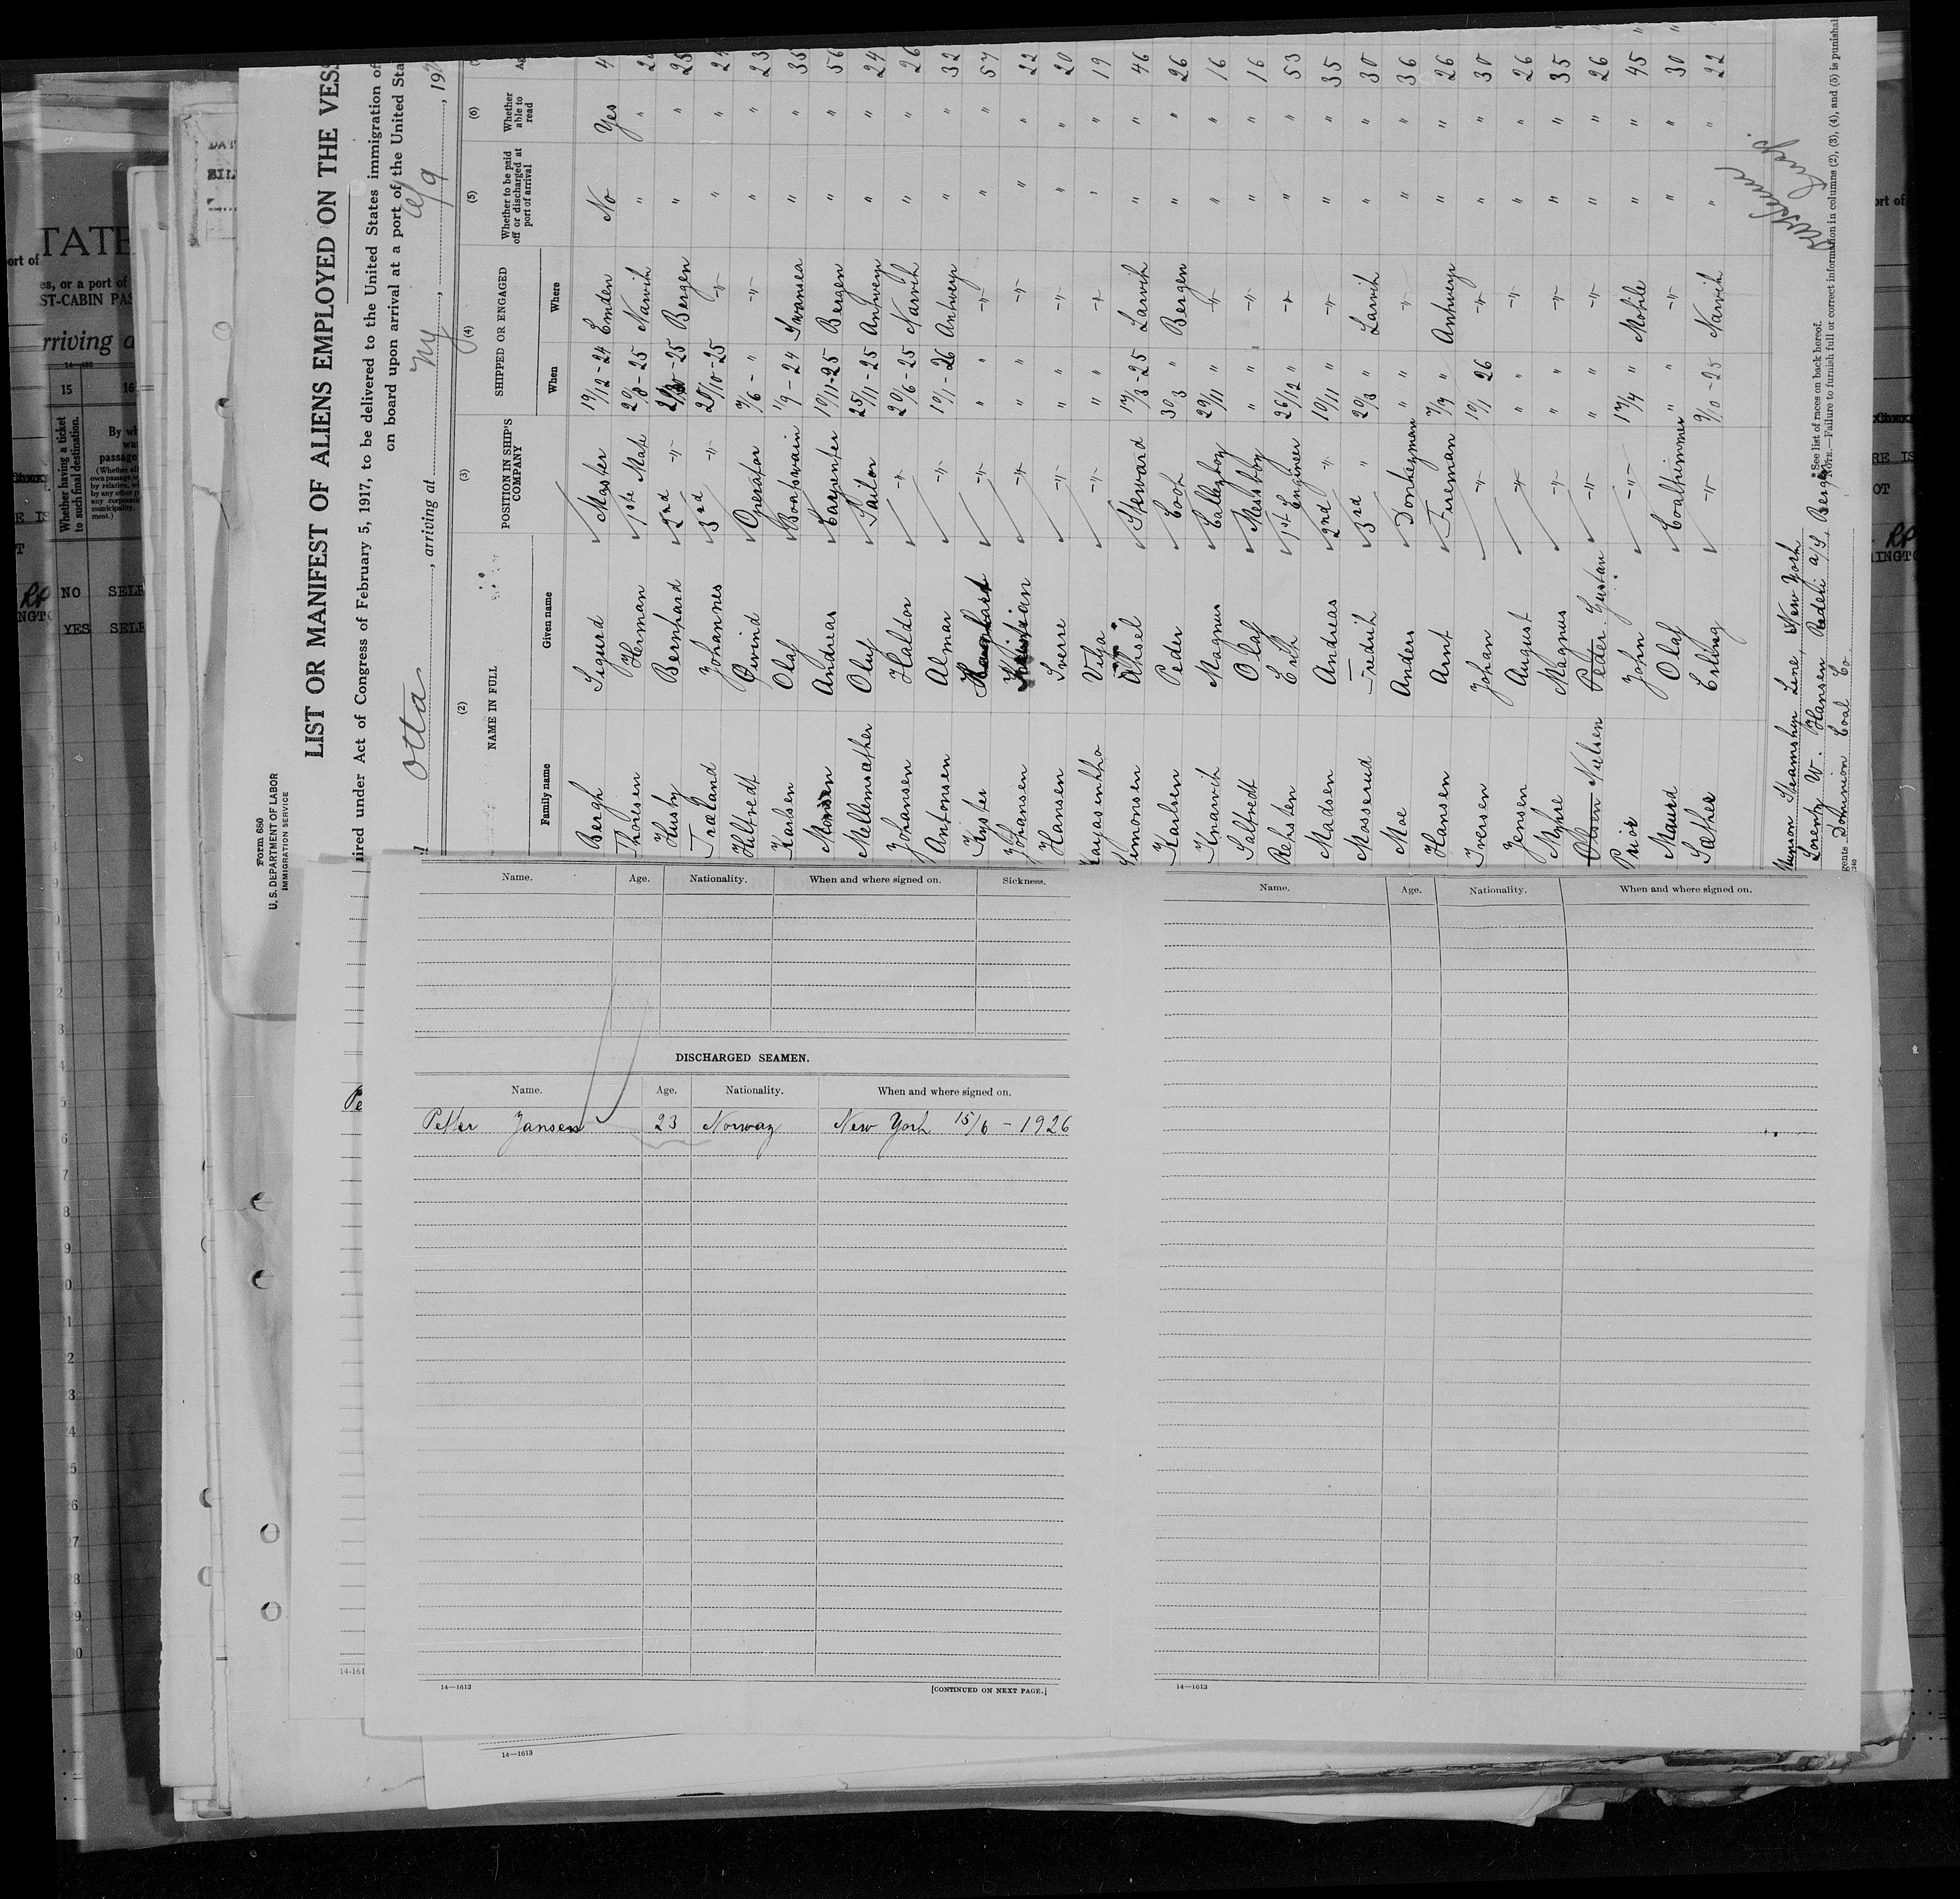 Form 680
U. S. DEPARTMENT OF LABOR
IMMIGRATION SERVICE
LIST OR MANIFEST OF ALIENS EMPLOYED ON THE VESS
ired under Act of Congress of February 5, 1917, to be delivered to the United States immigration of
on board upon arrival at a port of the United Sta
Otta, arriving at NY, 192
(2) (3) (4) (5) (6)
NAME IN FULL POSITION IN SHIP'S COMPANY SHIPPED OR ENGAGED Whether to be paid off or discharged at port of arrival Whether able to read
Family name Given name When Where
Bergh Sigurd Master 19/12-24 Emden No Yes
Thorsen Herman 1st Mate 20/8-25 Narvik " "
Husby Bernhard 2nd -"- Bergen " " 25
Træland Johannes 3rd -"- 20/10-25 -"- " "
Hiltvedt Øivind Operator 7/6- " -"- " " 23
Karlsen Olaf Boatswain 11/9-24 Swansea " " 35
Monsen Andreas Carpenter 10/11-25 Bergen " " 56
Mellemsæther Oluf Sailor 25/11-25 Antwerp " " 24
Johansen Haldor -"- 20/6-25 Narvik " " 26
Antonsen Almar -"- 10/1-26 Antwerp " " 32
-"- " -"- " " 57
Johansen -"- " -"- " " 22
Hansen Sverre -"- " -"- " " 20
-"- " -"- " " 19
Simonsen Aksel Steward 17/3-25 Larvik " " 46
Karlsen Peder Cook 30/3 " Bergen " " 26
Knarvik Magnus Galleyboy 20/11 " -"- " " 16
Saltvedt Olaf Messboy " " -"- " " 16
Refsten Erik 1st Engineer 26/12 " -"- " " 53
Madsen Andreas 2nd -"- 10/11 " -"- " " 35
Mosserud Fredrik 3rd " 20/3 " Larvik " " 30
Moe Anders Donkeyman " " -"- " " 36
Hansen Arnt Fireman 7/9 " Antwerp " " 26
Iversen Johan -"- 10/1 26 -"- " " 30
Jensen August -"- " -"- " " 26
Myhre Magnus -"- " -"- " " 35
Olsen Nielsen Peder Gustav -"- " -"- " " 26
Prior John -"- 17/4 " Mobile " " 45
Maurd Olaf Coaltrimmer " " -"- " " 30
Sæther Erling -"- 9/10-25 Narvik " " 22
Munson Steamship Line, New York
Lorentz W. Hansen Rederi a/S, Bergen
gents Dominion Coal Co.
* See list of races on back hereof.
NOTE.—Failure to furnish full or correct information in columns (2), (3), (4), and (5) is punishal
Name. Age. Nationality. When and where signed on. Sickness.
DISCHARGED SEAMEN.
Name. Age. Nationality. When and where signed on.
Petter Jansen 23 Norway New York 15/6 - 1926
14—1613 [CONTINUED ON NEXT PAGE.]
Name. Age. Nationality. When and where signed on.
14—1613
14—1613
TATE
ort of
es, or a port of
ST-CABIN PAS
rriving a
15 16
Whether having a ticket to such final destination.
NO SELF
YES SELF